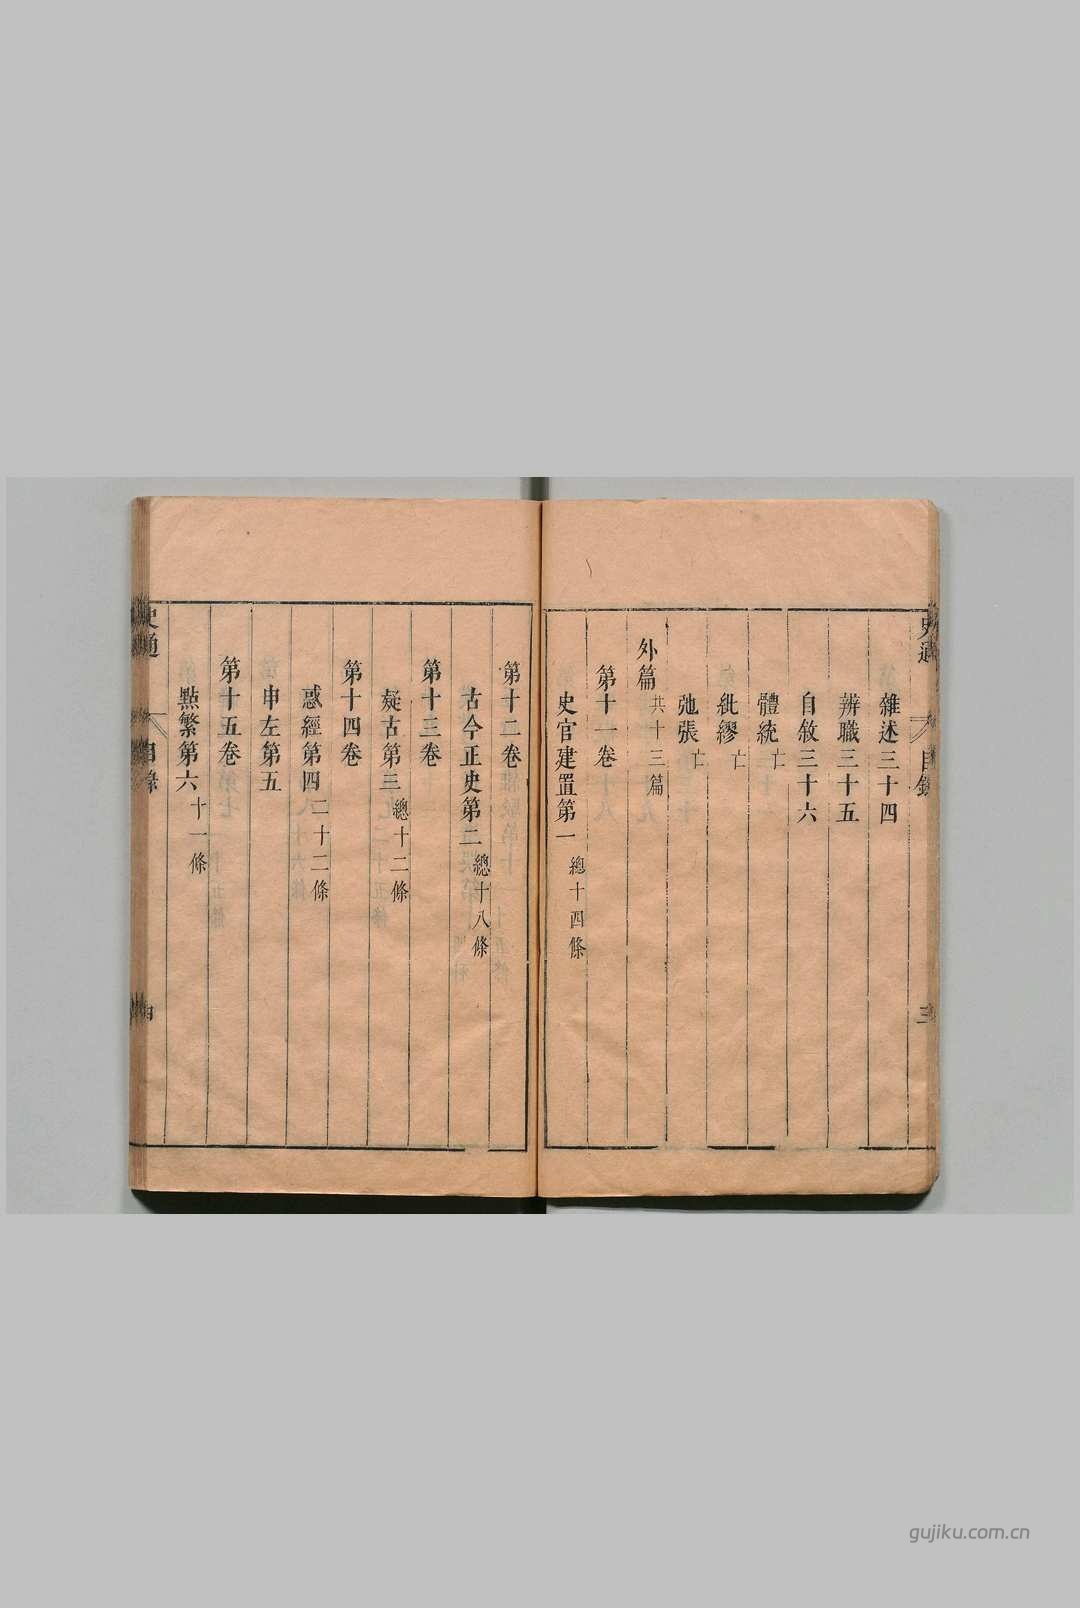 史通 目錄 三
雜述三十四
辨職三十五
自敘三十六
體統 亡
紕繆 亡
弛張 亡
外篇 共十三篇
第十一卷
史官建置第一 總十四條
第十二卷
古今正史第二 總十八條
第十三卷
疑古第三 總十二條
第十四卷
惑經第四 二十二條
申左第五
第十五卷
點繁第六 十一條
史通 目錄 四
gujiku.com.cn